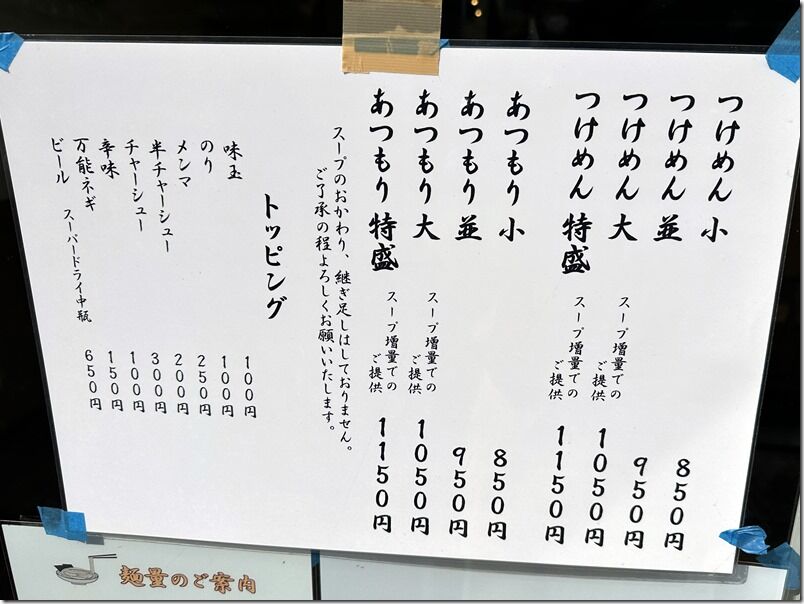 つけめん 小 850円
つけめん 並 950円
つけめん 大 スープ増量でのご提供 1050円
つけめん 特盛 スープ増量でのご提供 1150円
あつもり 小 850円
あつもり 並 950円
あつもり 大 スープ増量でのご提供 1050円
あつもり 特盛 スープ増量でのご提供 1150円
スープのおかわり、継ぎ足しはしておりません。
ご了承の程よろしくお願いいたします。
トッピング
味玉 100円
のり 100円
メンマ 250円
半チャーシュー 200円
チャーシュー 300円
辛味 100円
万能ネギ 150円
ビール スーパードライ中瓶 650円
麺量のご案内